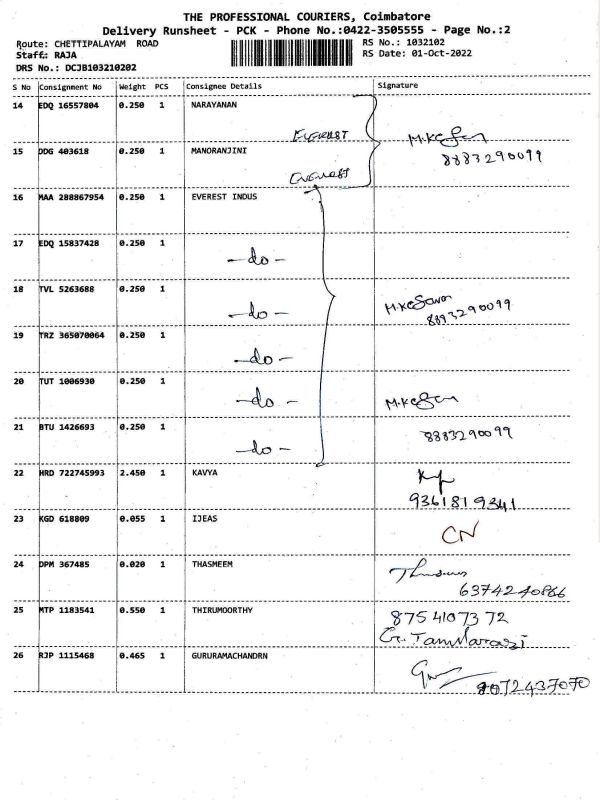 THE PROFESSIONAL COURIERS, Coimbatore
Delivery Runsheet - PCK - Phone No.:0422-3505555 - Page No.:2
Route: CHETTIPALAYAM ROAD RS No.: 1032102
Staff: RAJA RS Date: 01-Oct-2022
DRS No.: DCJB103210202
S No Consignment No Weight PCS Consignee Details Signature
14 EDQ 16557804 0.250 1 NARAYANAN
EVEREST M.Kesavan
15 DDG 403618 0.250 1 MANORANJINI 8883290099
EVEREST
16 MAA 288867954 0.250 1 EVEREST INDUS
17 EDQ 15837428 0.250 1
-do-
18 TVL 5263688 0.250 1 M.Kesavan
-do- 8893290099
19 TRZ 365070064 0.250 1
-do-
20 TUT 1006930 0.250 1
-do- M.Kesavan
21 BTU 1426693 0.250 1 8883290099
-do-
22 HRD 722745993 2.450 1 KAVYA
9361819341
23 KGD 618809 0.055 1 IJEAS
CN
24 DPM 367485 0.020 1 THASMEEM
6374240866
25 MTP 1183541 0.550 1 THIRUMOORTHY 8754107372
G. Tamilarasi
26 RJP 1115468 0.465 1 GURURAMACHANDRN
8072437070